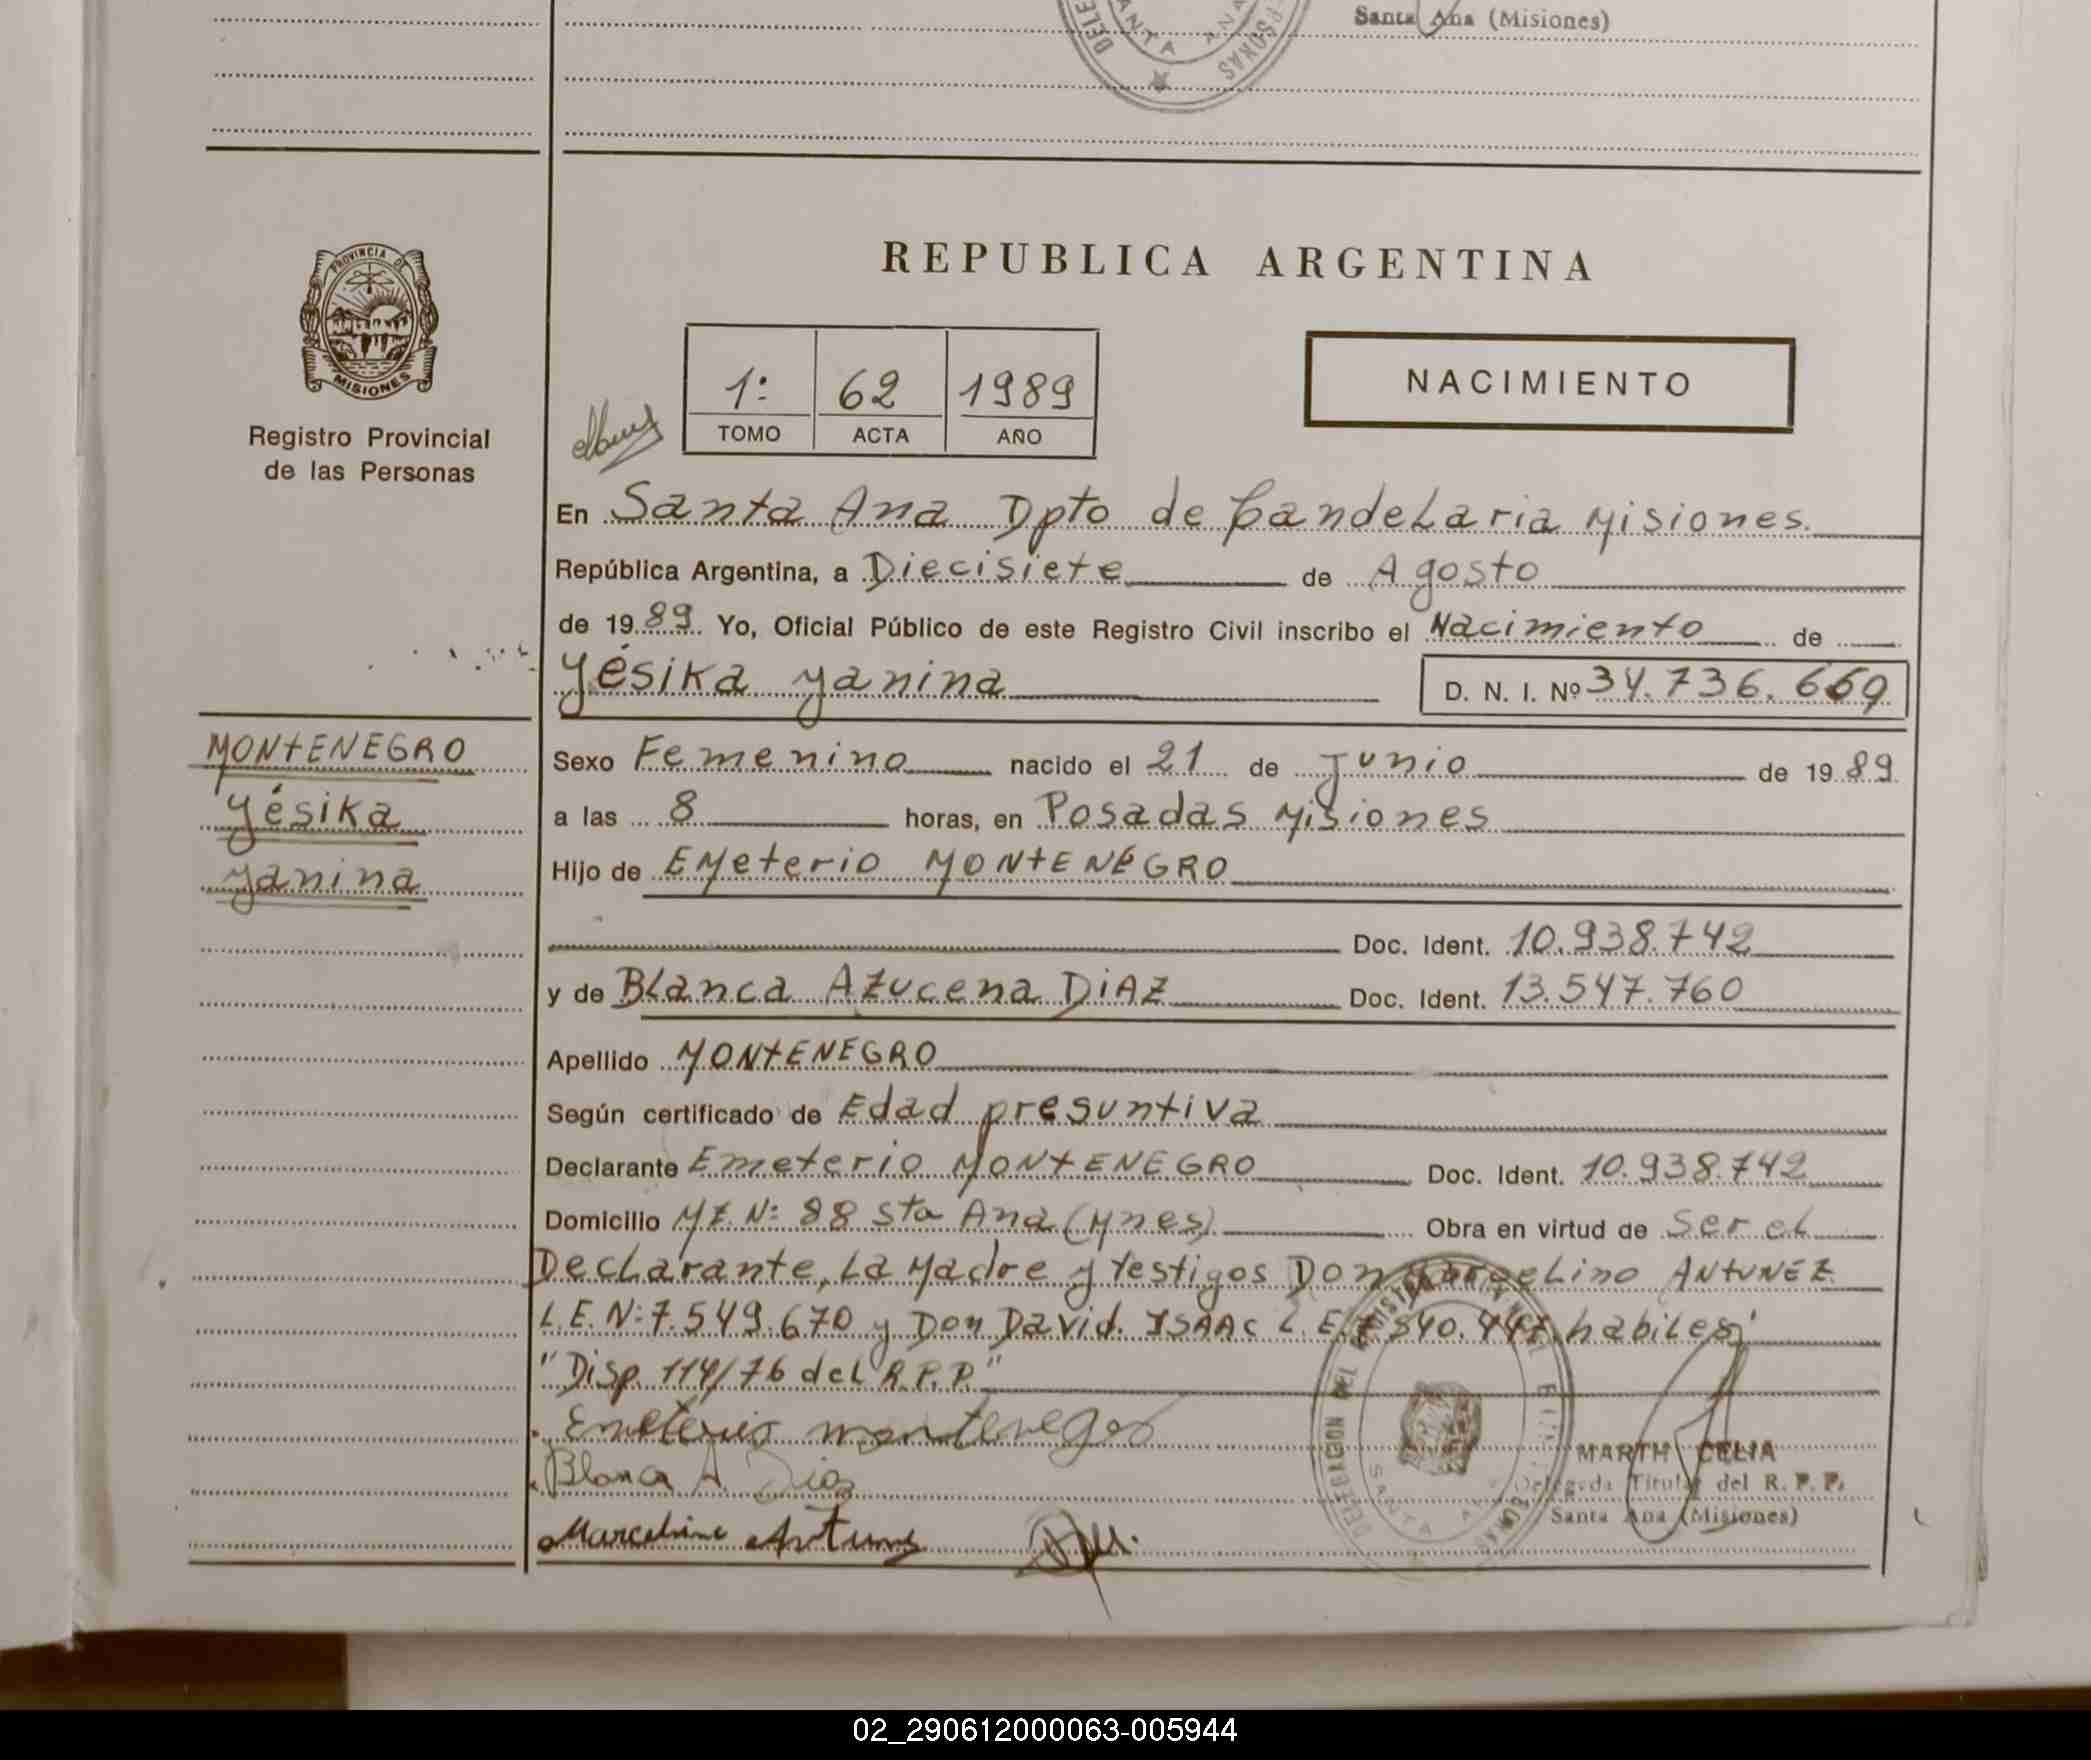 Santa Ana (Misiones)
DELE
SANTA ANA
PROVINCIA DE
MISIONES
Registro Provincial
de las Personas
REPUBLICA ARGENTINA
1: 62 1989
TOMO ACTA AÑO
NACIMIENTO
En Santa Ana Dpto de Candelaria Misiones.
República Argentina, a Diecisiete de Agosto
de 1989 Yo, Oficial Público de este Registro Civil inscribo el Nacimiento de
Yésika Yanina D. N. I. Nº 34.736.669
MONTENEGRO
Yésika
Yanina
Sexo Femenino nacido el 21 de Junio de 1989
a las 8 horas, en Posadas Misiones
Hijo de EMeterio MONTENEGRO
Doc. Ident. 10.938.742
y de Blanca Azucena DiAZ Doc. Ident. 13.547.760
Apellido MONTENEGRO
Según certificado de Edad presuntiva
Declarante Emeterio MONTENEGRO Doc. Ident. 10.938.742
Domicilio MZ. N: 88 Sta Ana (Mnes) Obra en virtud de Ser el
Declarante, La Madre y testigos Don Marcelino ANTUNEZ
L.E.N:7.549.670 y Don David. ISAAC L.E.7.540.447. habiles;
"Disp. 114/76 del R.P.P."
Emeterio montenegro
Blanca A. Dias
Marcelino Antunez
MARTH CELIA
Delegada Titular del R. P. P.
Santa Ana (Misiones)
02_290612000063-005944